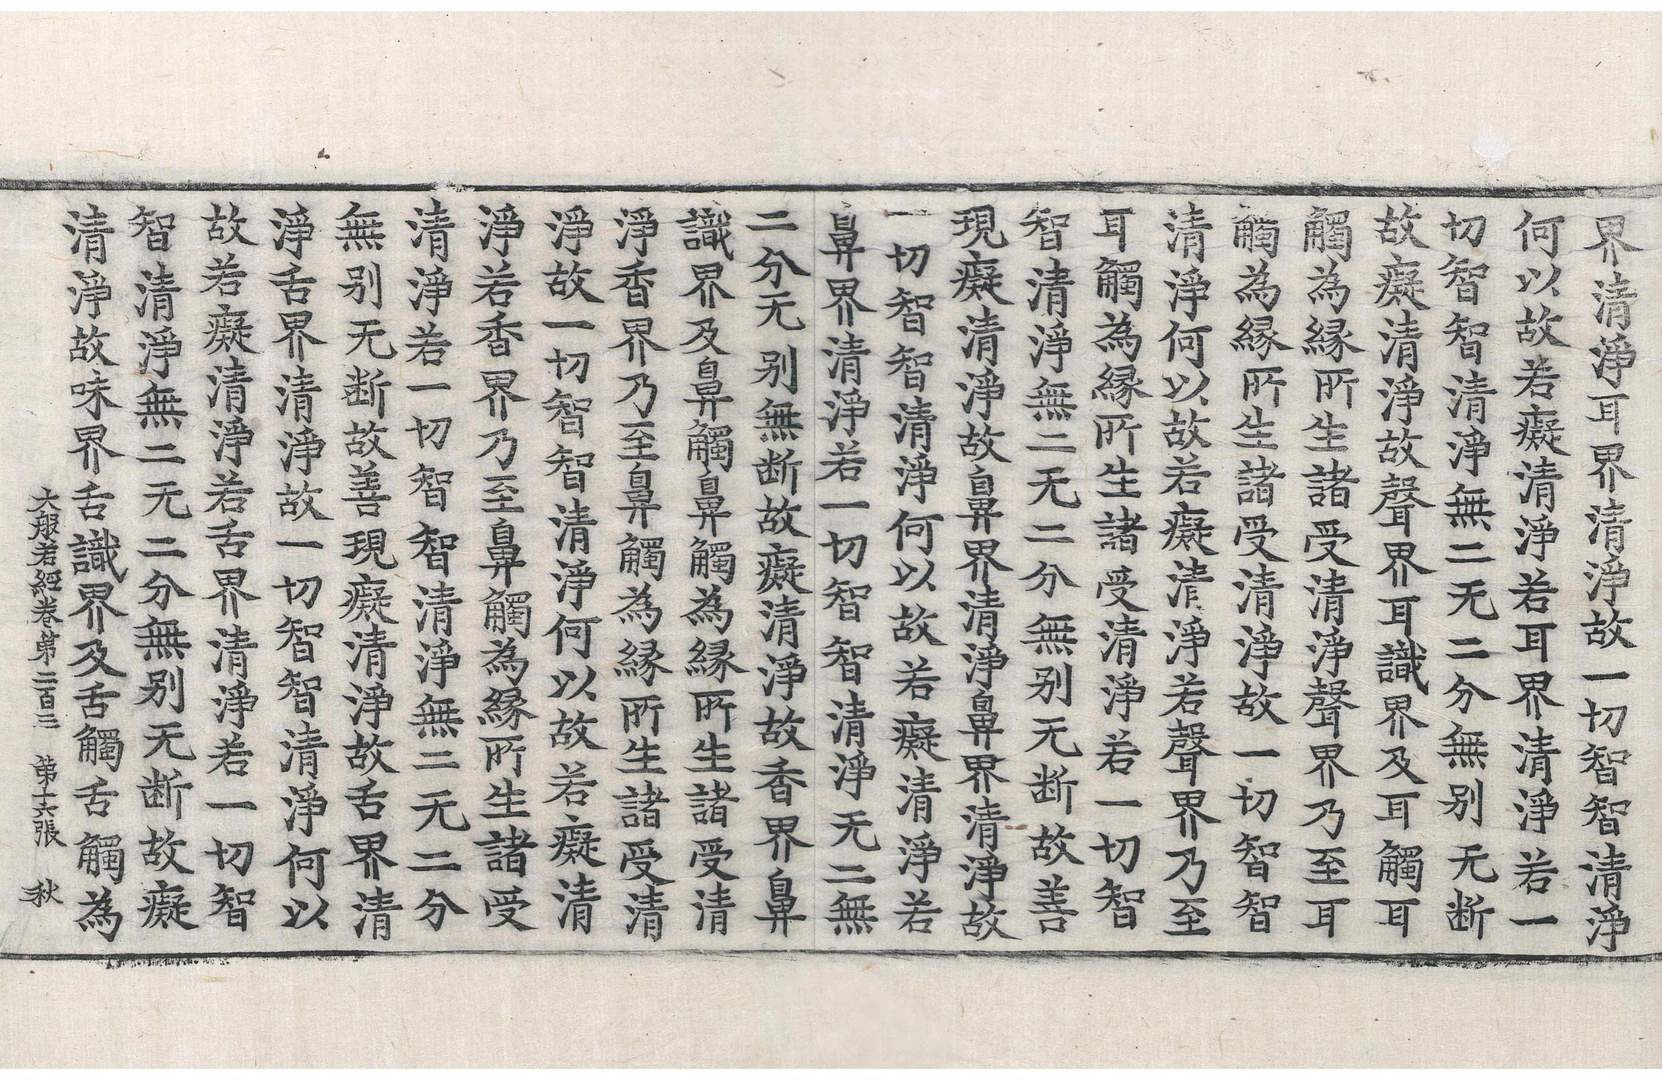 界清淨耳界清淨故一切智智清淨
何以故若癡清淨若耳界清淨若一
切智智清淨無二无二分無别无断
故癡清淨故聲界耳識界及耳觸耳
觸為緣所生諸受清淨聲界乃至耳
觸為緣所生諸受清淨故一切智智
清淨何以故若癡清淨若聲界乃至
耳觸為緣所生諸受清淨若一切智
智清淨無二无二分無别无断故善
現癡清淨故鼻界清淨鼻界清淨故
一切智智清淨何以故若癡清淨若
鼻界清淨若一切智智清淨无二無
二分无别無断故癡清淨故香界鼻
識界及鼻觸鼻觸為緣所生諸受清
淨香界乃至鼻觸為緣所生諸受清
淨故一切智智清淨何以故若癡清
淨若香界乃至鼻觸為緣所生諸受
清淨若一切智智清淨無二无二分
無别无断故善現癡清淨故舌界清
淨舌界清淨故一切智智清淨何以
故若癡清淨若舌界清淨若一切智
智清淨無二无二分無别无断故癡
清淨故味界舌識界及舌觸舌觸為
大般若經卷第二百三　第十六張　秋